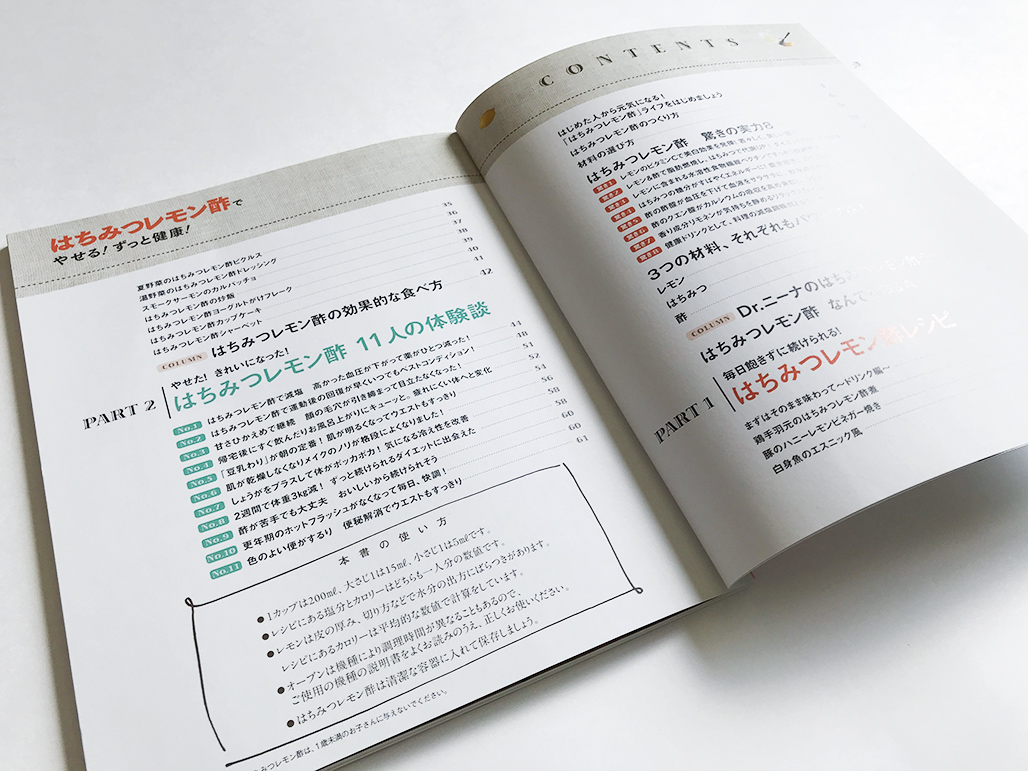 はちみつレモン酢で
やせる！ずっと健康！
夏野菜のはちみつレモン酢ピクルス 35
温野菜のはちみつレモン酢ドレッシング 36
スモークサーモンのカルパッチョ 37
はちみつレモン酢の炒飯 38
はちみつレモン酢ヨーグルトがけフレーク 39
はちみつレモン酢カップケーキ 40
はちみつレモン酢シャーベット 41
COLUMN はちみつレモン酢の効果的な食べ方 42
PART 2
やせた！ きれいになった！
はちみつレモン酢 11人の体験談
No.1 はちみつレモン酢で減塩 高かった血圧が下がって薬がひとつ減った！ 44
No.2 はちみつレモン酢で運動後の回復が早くいつでもベストコンディション！ 48
No.3 甘さひかえめで継続 顔の毛穴が引き締まって目立たなくなった！ 51
No.4 帰宅後にすぐ飲んだりお風呂上がりにキューッと。疲れにくい体へと変化 52
No.5 「豆乳わり」が朝の定番！肌が明るくなってウエストもすっきり 54
No.6 肌が乾燥しなくなりメイクのノリが格段によくなりました！ 56
No.7 しょうがをプラスして体がポッカポカ！気になる冷え性を改善 58
No.8 2週間で体重3kg減！ずっと続けられるダイエットに出会えた 60
No.9 酢が苦手でも大丈夫 おいしいから続けられそう 60
No.10 更年期のホットフラッシュがなくなって毎日、快調！ 61
No.11 色のよい便がするり 便秘解消でウエストもすっきり
本書の使い方
●1カップは200mℓ、大さじ1は15mℓ、小さじ1は5mℓです。
●レシピにある塩分とカロリーはどちらも一人分の数値です。
●レモンは皮の厚み、切り方などで水分の出方にばらつきがあります。
レシピにあるカロリーは平均的な数値で計算をしています。
●オーブンは機種により調理時間が異なることもあるので、
ご使用の機種の説明書をよくお読みのうえ、正しくお使いください。
●はちみつレモン酢は清潔な容器に入れて保存しましょう。
みつレモン酢は、1歳未満のお子さんに与えないでください。
CONTENTS
はじめた人から元気になる！
「はちみつレモン酢」ライフをはじめましょう
はちみつレモン酢のつくり方
材料の選び方
はちみつレモン酢 驚きの実力8
驚き1 レモンのビタミンCで美白効果を発揮！
驚き2 レモン＆酢で脂肪燃焼し、はちみつで代謝UP
驚き3 レモンに含まれる水溶性食物繊維ペクチン
驚き4 はちみつの糖分がすばやくエネルギーに！
驚き5 酢の酢酸が血圧を下げて血液をサラサラに
驚き6 酢のクエン酸がカルシウムの吸収を高め
驚き7 香り成分リモネンが気持ちを静める
驚き8 健康ドリンクとして、料理の減塩調味料
3つの材料、それぞれも
レモン
はちみつ
酢
COLUMN Dr.ニーナのはち
はちみつレモン酢 なん
PART 1
毎日飽きずに続けられる！
はちみつレモン酢レシピ
まずはそのまま味わって〜ドリンク編〜
鶏手羽元のはちみつレモン酢煮
豚のハニーレモンビネガー焼き
白身魚のエスニック風